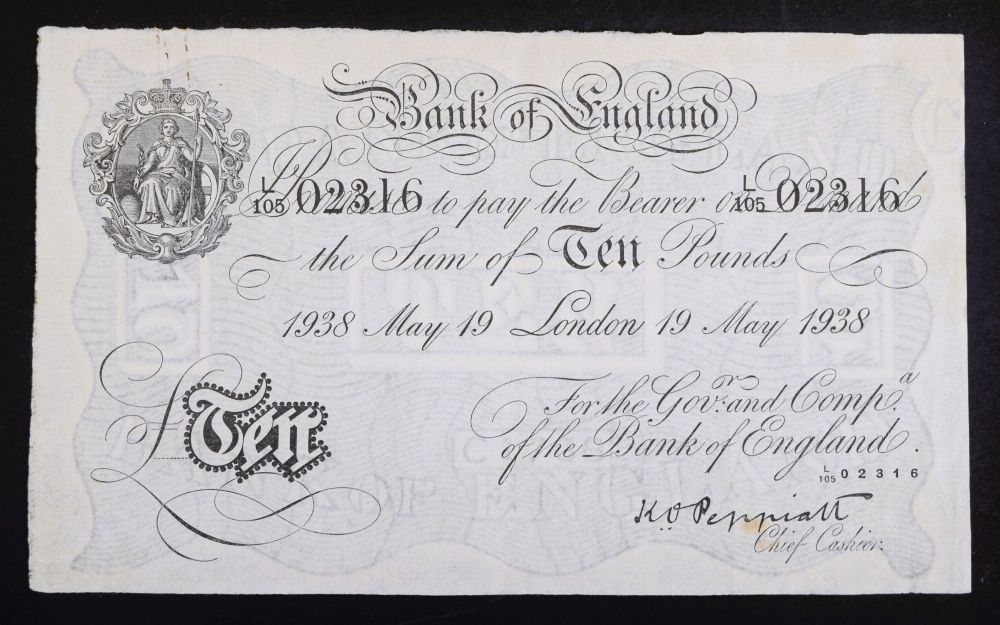 Bank of England
L/105 02316 to pay the Bearer on L/105 02316
the Sum of Ten Pounds
1938 May 19 London 19 May 1938
£ Ten
For the Govr. and Compa.
of the Bank of England.
L/105 02316
K O Peppiatt
Chief Cashier.